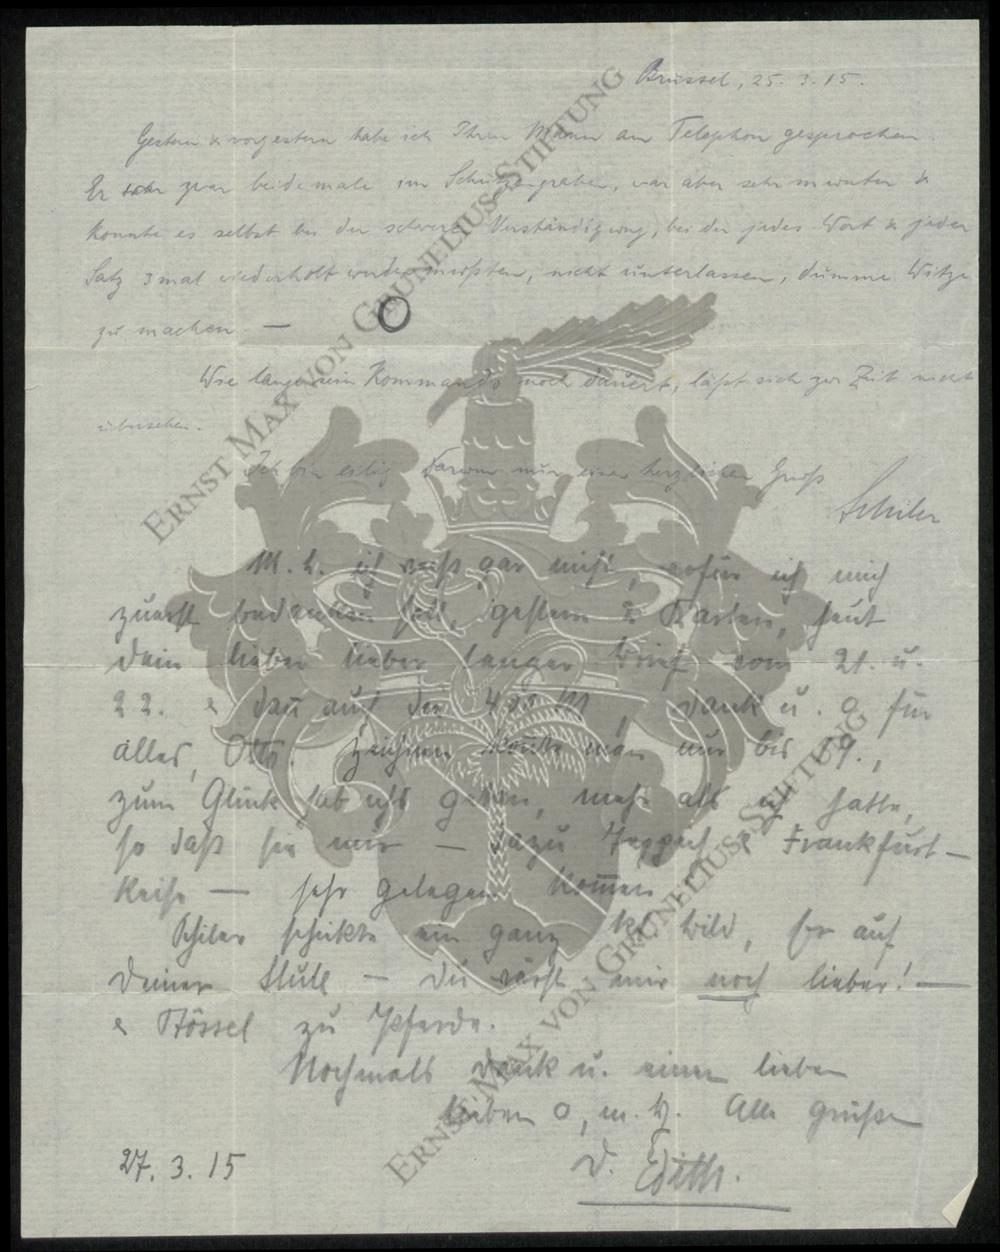 Brüssel, 25. 3. 15.
Gestern & vorgestern habe ich Ihren Mann am Telephon gesprochen.
Er war zwar beidemale im Schützengraben, war aber sehr munter &
konnte es selbst bei der schweren Verständigung, bei der jedes Wort & jeder
Satz 3 mal wiederholt werden mußten, nicht unterlassen, dumme Witze
zu machen. —
O
Wie lange sein Kommando noch dauert, läßt sich zur Zeit nicht
übersehen.
Ich bin eilig. Darum nur einen herzlichen Gruß
Schiler
M. L. ich weiß gar nicht, wofür ich mich
zuerst bedanken soll, gestern 2 Karten, heut
Dein lieber lieber langer Brief vom 21. u.
22. & dann auch die 400 M, Dank u. O für
alles, Otto. Zeichnen konnte man nur bis 19.,
zum Glück hab ichs getan, mehr als ich hatte,
so daß sie mir — dazu Teppich & Frankfurt-
Reise — sehr gelegen kommen.
Schiler schickte ein ganz kl. Bild, Er auf
Deiner Stute — Du wärst mir noch lieber! —
& Stössel zu Pferde.
Nochmals Dank u. einen lieben
lieben O, m. H. Alle grüßen
D. Edith.
27. 3. 15
ERNST MAX VON GRUNELIUS-STIFTUNG
ERNST MAX VON GRUNELIUS-STIFTUNG